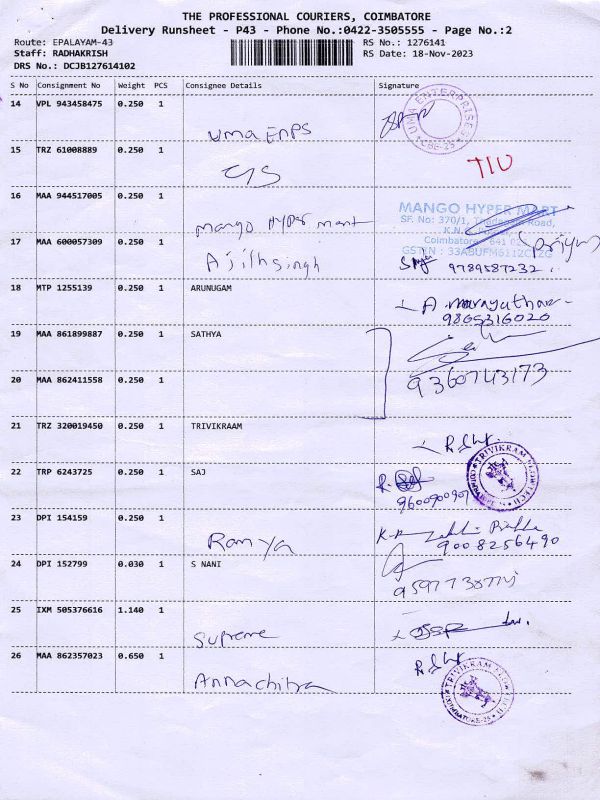 THE PROFESSIONAL COURIERS, COIMBATORE
Delivery Runsheet - P43 - Phone No.:0422-3505555 - Page No.:2
Route: EPALAYAM-43 RS No.: 1276141
Staff: RADHAKRISH RS Date: 18-Nov-2023
DRS No.: DCJB127614102
S No Consignment No Weight PCS Consignee Details Signature
14 VPL 943458475 0.250 1
Uma ENPS
UMA ENTERPRISES CBE-25
15 TRZ 61008889 0.250 1
TIU
16 MAA 944517005 0.250 1
Mango Hyper Mart
MANGO HYPER MART
SF. No: 370/1, Thadagam Road,
K.N.
Coimbatore 641
GSTIN : 33ABUFM6112C1ZG
(Priya)
17 MAA 600057309 0.250 1
Ajithsingh
9789587232
18 MTP 1255139 0.250 1 ARUNUGAM
A.
9865316020
19 MAA 861899887 0.250 1 SATHYA
9360743173
20 MAA 862411558 0.250 1
21 TRZ 320019450 0.250 1 TRIVIKRAAM
TRIVIKRAM
22 TRP 6243725 0.250 1 SAJ
9600900907
23 DPI 154159 0.250 1
Ramya
9008256490
24 DPI 152799 0.030 1 S NANI
25 IXM 505376616 1.140 1
Supreme
26 MAA 862357023 0.650 1
Annachitra
TRIVIKRAM COIMBATORE-25